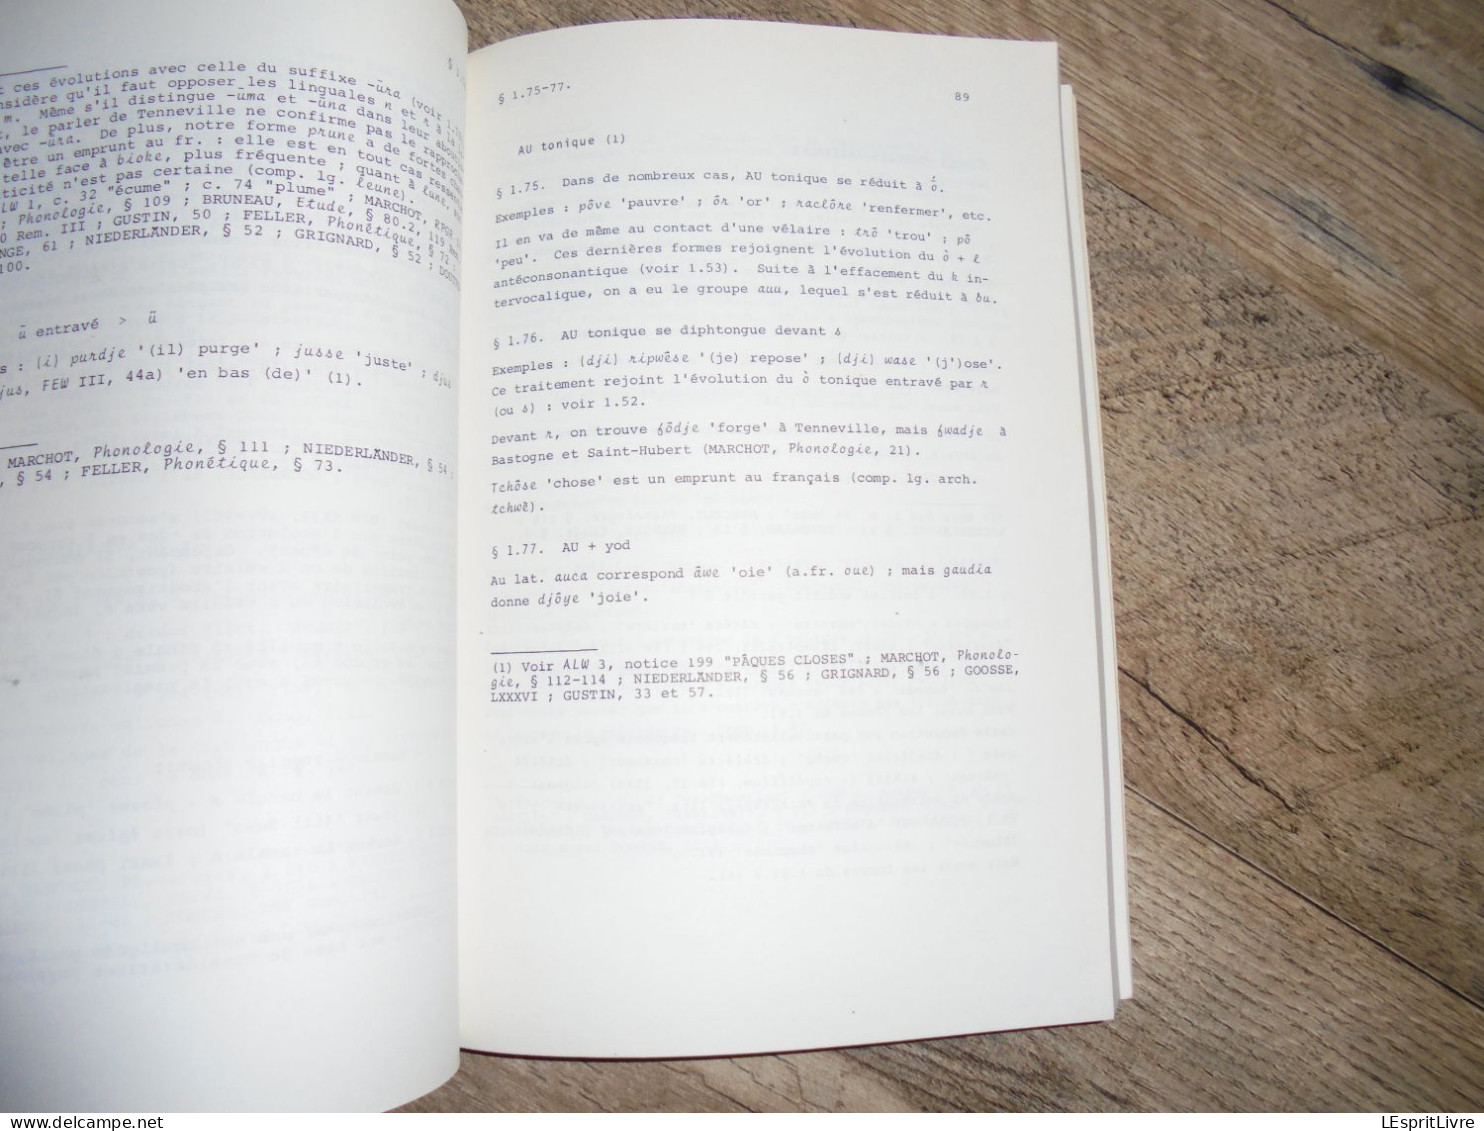 t ces évolutions avec celle du suffixe -ūra (voir
nsidère qu'il faut opposer les linguales n et r à
m. Même s'il distingue -ūma et -ūna dans leur
t, le parler de Tenneville ne confirme pas le
avec -ūra. De plus, notre forme prune a de fortes
être un emprunt au fr. : elle est en tout cas
telle face à bioke, plus fréquente ; quant à lune,
ticité n'est pas certaine (comp. lg. leune).
ALW 1, c. 32 "écume" ; c. 74 "plume" ; MARCHOT,
; Phonologie, § 109 ; BRUNEAU, Etude, § 80.2, 119
0 Rem. III ; GUSTIN, 50 ; FELLER, Phonétique, § 72
NGE, 61 ; NIEDERLÄNDER, § 52 ; GRIGNARD, § 52 ;
100.
ū entravé > ü
s : (i) purdje '(il) purge' ; jusse 'juste' ; djus
jus, FEW III, 44a) 'en bas (de)' (1).
MARCHOT, Phonologie, § 111 ; NIEDERLÄNDER, § 54 ;
, § 54 ; FELLER, Phonétique, § 73.
§ 1.75-77.
89
AU tonique (1)
§ 1.75. Dans de nombreux cas, AU tonique se réduit à ọ̄.
Exemples : pôve 'pauvre' ; ôr 'or' ; raclôre 'renfermer', etc.
Il en va de même au contact d'une vélaire : trô 'trou' ; pô
'peu'. Ces dernières formes rejoignent l'évolution du ò + l
antéconsonantique (voir 1.53). Suite à l'effacement du k in-
tervocalique, on a eu le groupe auu, lequel s'est réduit à ou.
§ 1.76. AU tonique se diphtongue devant s
Exemples : (dji) ripwêse '(je) repose' ; (dji) wase '(j')ose'.
Ce traitement rejoint l'évolution du ò tonique entravé par r
(ou s) : voir 1.52.
Devant r, on trouve fôdje 'forge' à Tenneville, mais fwadje à
Bastogne et Saint-Hubert (MARCHOT, Phonologie, 21).
Tchôse 'chose' est un emprunt au français (comp. lg. arch.
tchwè).
§ 1.77. AU + yod
Au lat. auca correspond âwe 'oie' (a.fr. oue) ; mais gaudia
donne djôye 'joie'.
(1) Voir ALW 3, notice 199 "PÂQUES CLOSES" ; MARCHOT, Phonolo-
gie, § 112-114 ; NIEDERLÄNDER, § 56 ; GRIGNARD, § 56 ; GOOSSE,
LXXXVI ; GUSTIN, 33 et 57.
LEspritLivre